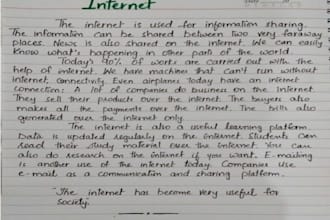 Internet
The internet is used for information sharing.
The information can be shared between two very faraway
places. News is also shared on the internet. We can easily
know what's happening in other part of the world.
Today's 90% of works are carried out with the
help of internet. We have machines that can't run without
internet connectivity. Even airplanes today have an internet
connection. A lot of companies do business on the internet.
They sell their products over the internet. The buyers also
makes all the payments over the internet. The bills also
generated over the internet only.
The internet is also a useful learning platform.
Data is updated regularly on the internet. Students can
read their study material over the internet. You can
also do research on the internet if you want. E-mailing
is another use of the internet today. Companies use
e-mail as a communication and sharing platform.
The internet has become very useful for
Society.